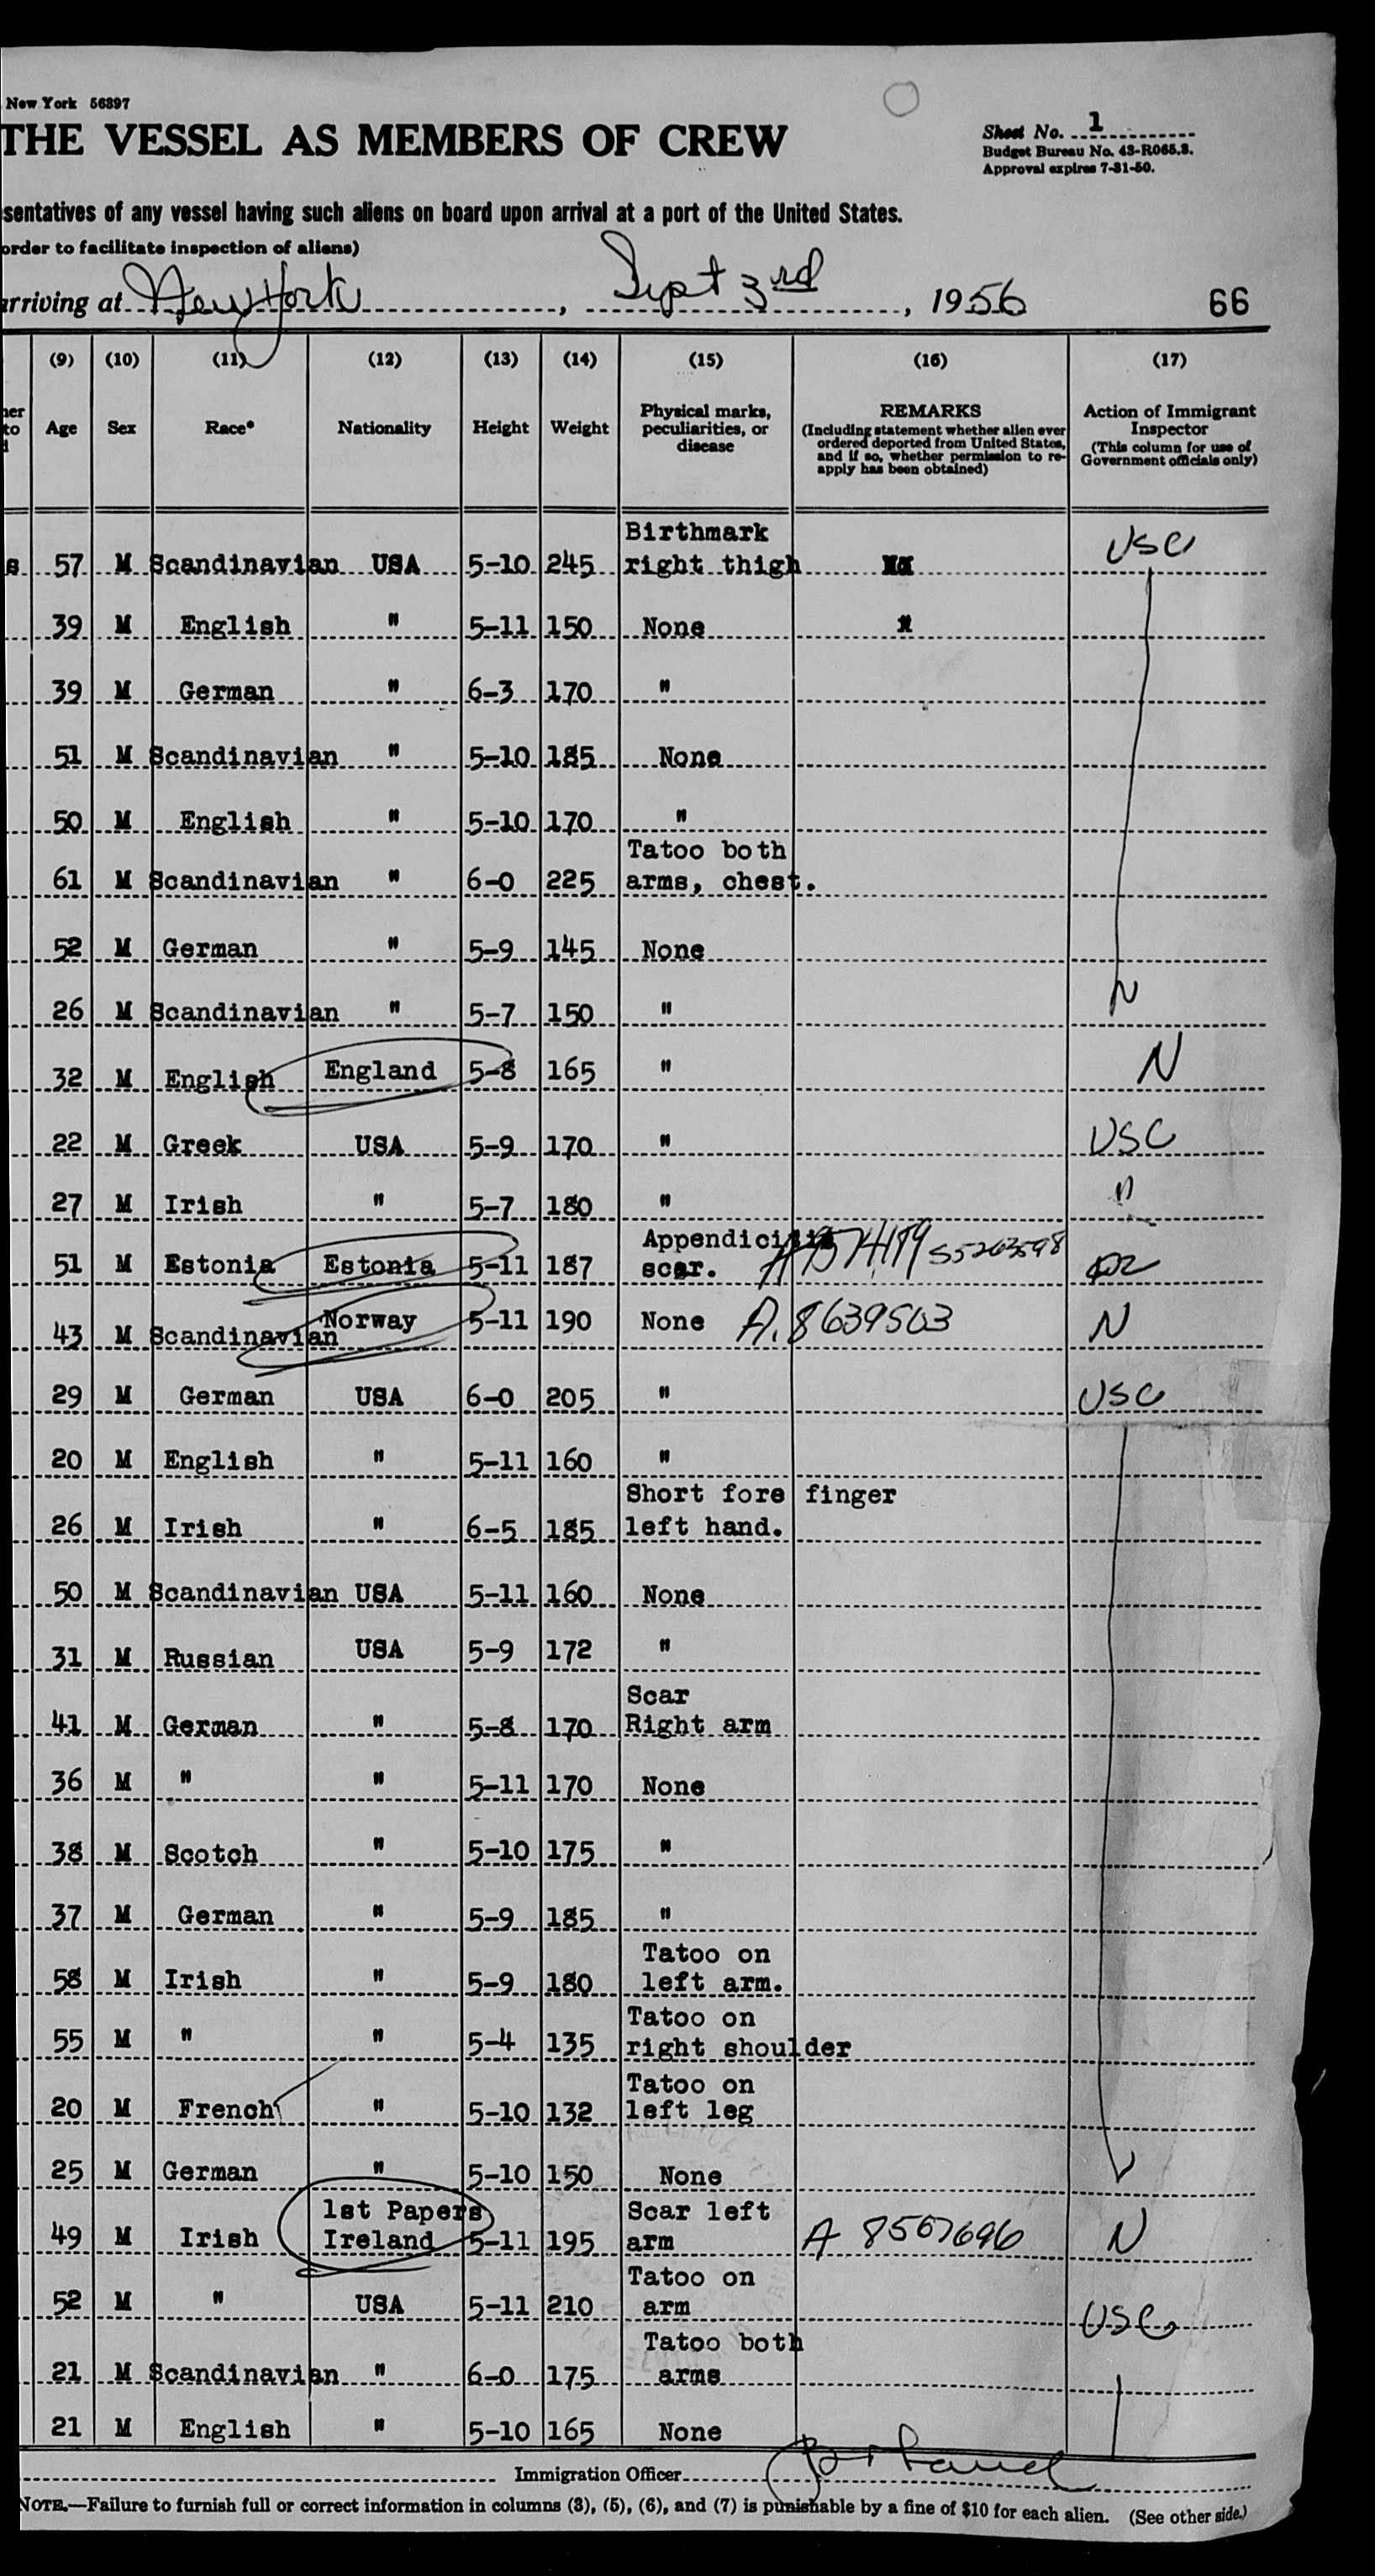 New York 56397
THE VESSEL AS MEMBERS OF CREW
Sheet No. 1
Budget Bureau No. 43-R065.3.
Approval expires 7-31-50.
sentatives of any vessel having such aliens on board upon arrival at a port of the United States.
order to facilitate inspection of aliens)
arriving at New York, Sept 3rd, 1956 66
(9) (10) (11) (12) (13) (14) (15) (16) (17)
Age Sex Race* Nationality Height Weight Physical marks, peculiarities, or disease REMARKS (Including statement whether alien ever ordered deported from United States, and if so, whether permission to re-apply has been obtained) Action of Immigrant Inspector (This column for use of Government officials only)
s 57 M Scandinavian USA 5-10 245 Birthmark right thigh USC
39 M English " 5-11 150 None
39 M German " 6-3 170 "
51 M Scandinavian " 5-10 185 None
50 M English " 5-10 170 "
61 M Scandinavian " 6-0 225 Tatoo both arms, chest.
52 M German " 5-9 145 None
26 M Scandinavian " 5-7 150 "
32 M English England 5-8 165 " N
22 M Greek USA 5-9 170 " USC
27 M Irish " 5-7 180 " "
51 M Estonia Estonia 5-11 187 Appendicitis scar.
43 M Scandinavian Norway 5-11 190 None A. 8639503 N
29 M German USA 6-0 205 " USC
20 M English " 5-11 160 "
26 M Irish " 6-5 185 Short fore finger left hand.
50 M Scandinavian USA 5-11 160 None
31 M Russian USA 5-9 172 "
41 M German " 5-8 170 Scar Right arm
36 M " " 5-11 170 None
38 M Scotch " 5-10 175 "
37 M German " 5-9 185 "
58 M Irish " 5-9 180 Tatoo on left arm.
55 M " " 5-4 135 Tatoo on right shoulder
20 M French " 5-10 132 Tatoo on left leg
25 M German " 5-10 150 None
49 M Irish 1st Papers Ireland 5-11 195 Scar left arm A 8567696 N
52 M " USA 5-11 210 Tatoo on arm USC
21 M Scandinavian " 6-0 175 Tatoo both arms
21 M English " 5-10 165 None
Immigration Officer
NOTE.—Failure to furnish full or correct information in columns (3), (5), (6), and (7) is punishable by a fine of $10 for each alien. (See other side.)